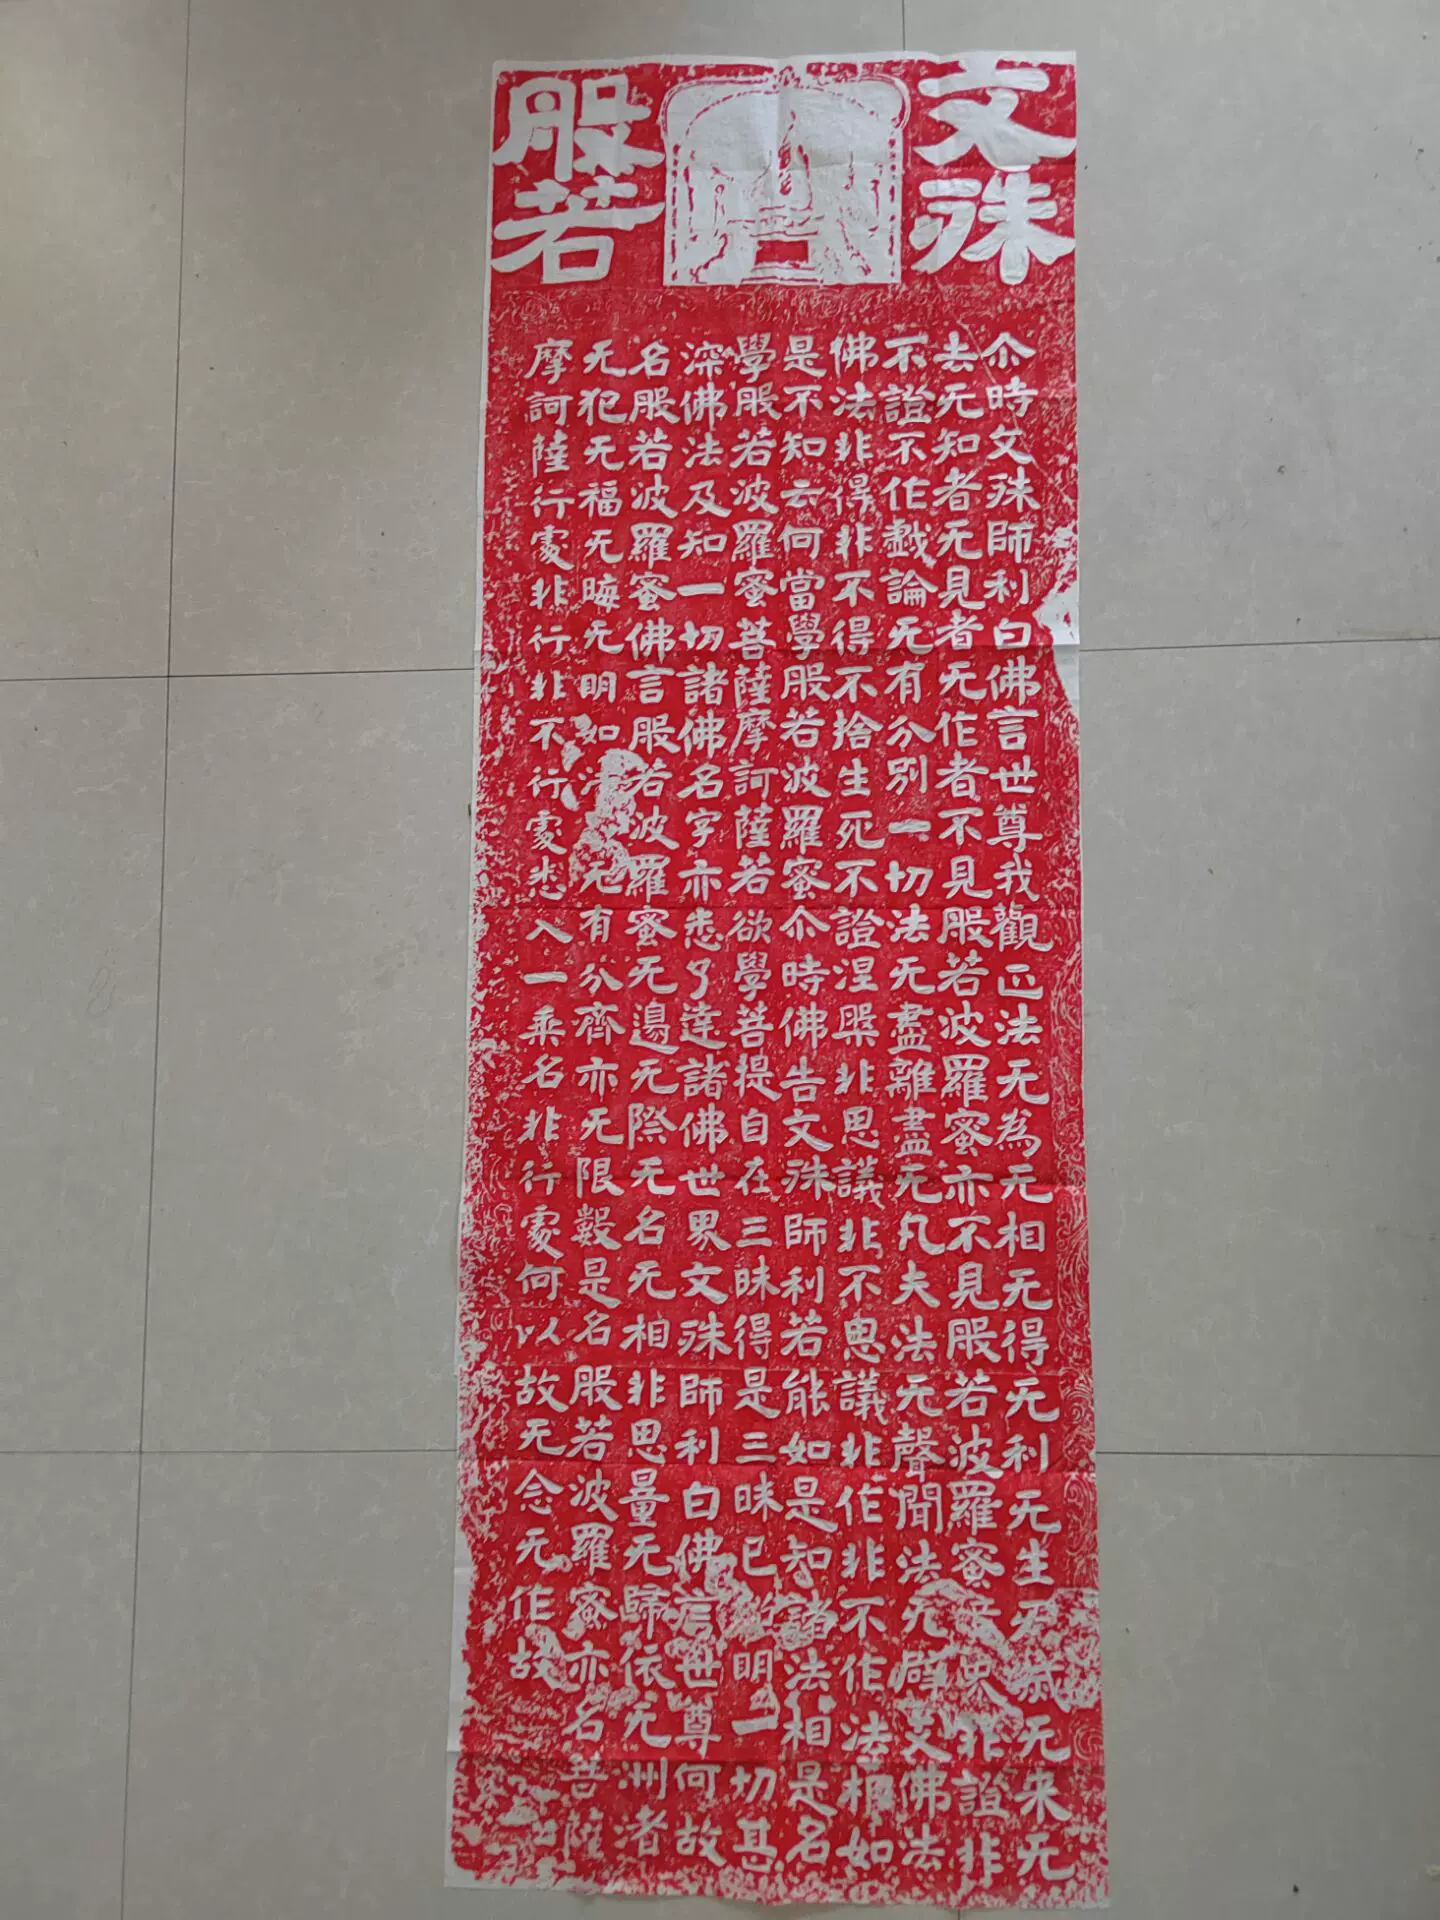 文殊
般若
尒時文殊師利白佛言世尊我觀正法无為无相无得无利无生无滅无来无
去无知者无見者无作者不見般若波羅蜜亦不見般若波羅蜜非證非
不證不作戲論无有分別一切法无盡離盡无凡夫法无聲聞法无辟支佛法
佛法非得非不得不捨生死不證涅槃非思議非不思議非作非不作法相如
是不知云何當學般若波羅蜜尒時佛告文殊師利若能如是知諸法相是名
學般若波羅蜜菩薩摩訶薩若欲學菩提自在三昧得是三昧已照明一切甚
深佛法及知一切諸佛名字亦悉了達諸佛世界文殊師利白佛言世尊何故
名般若波羅蜜佛言般若波羅蜜无邊无際无名无相非思量无歸依无洲者
无犯无福无晦无明如法无有分齊亦无限數是名般若波羅蜜亦名菩薩
摩訶薩行處非行非不行處悉入一乘名非行處何以故无念无作故